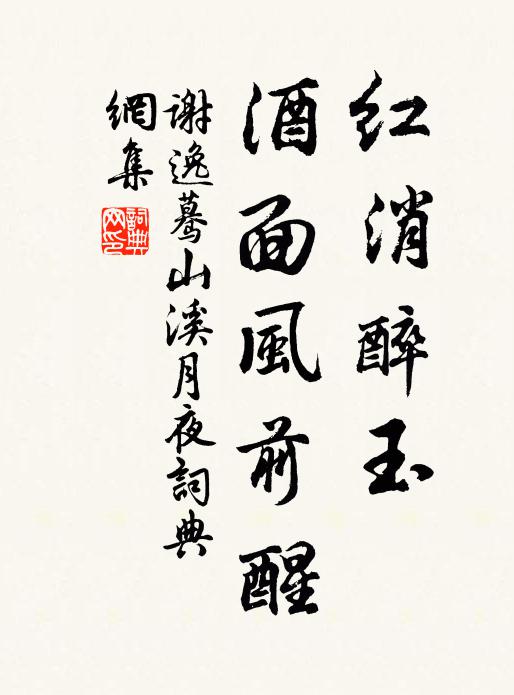 紅消醉玉
酒面風前醒
謝逸驀山溪月夜詞典
網集
詞典網印